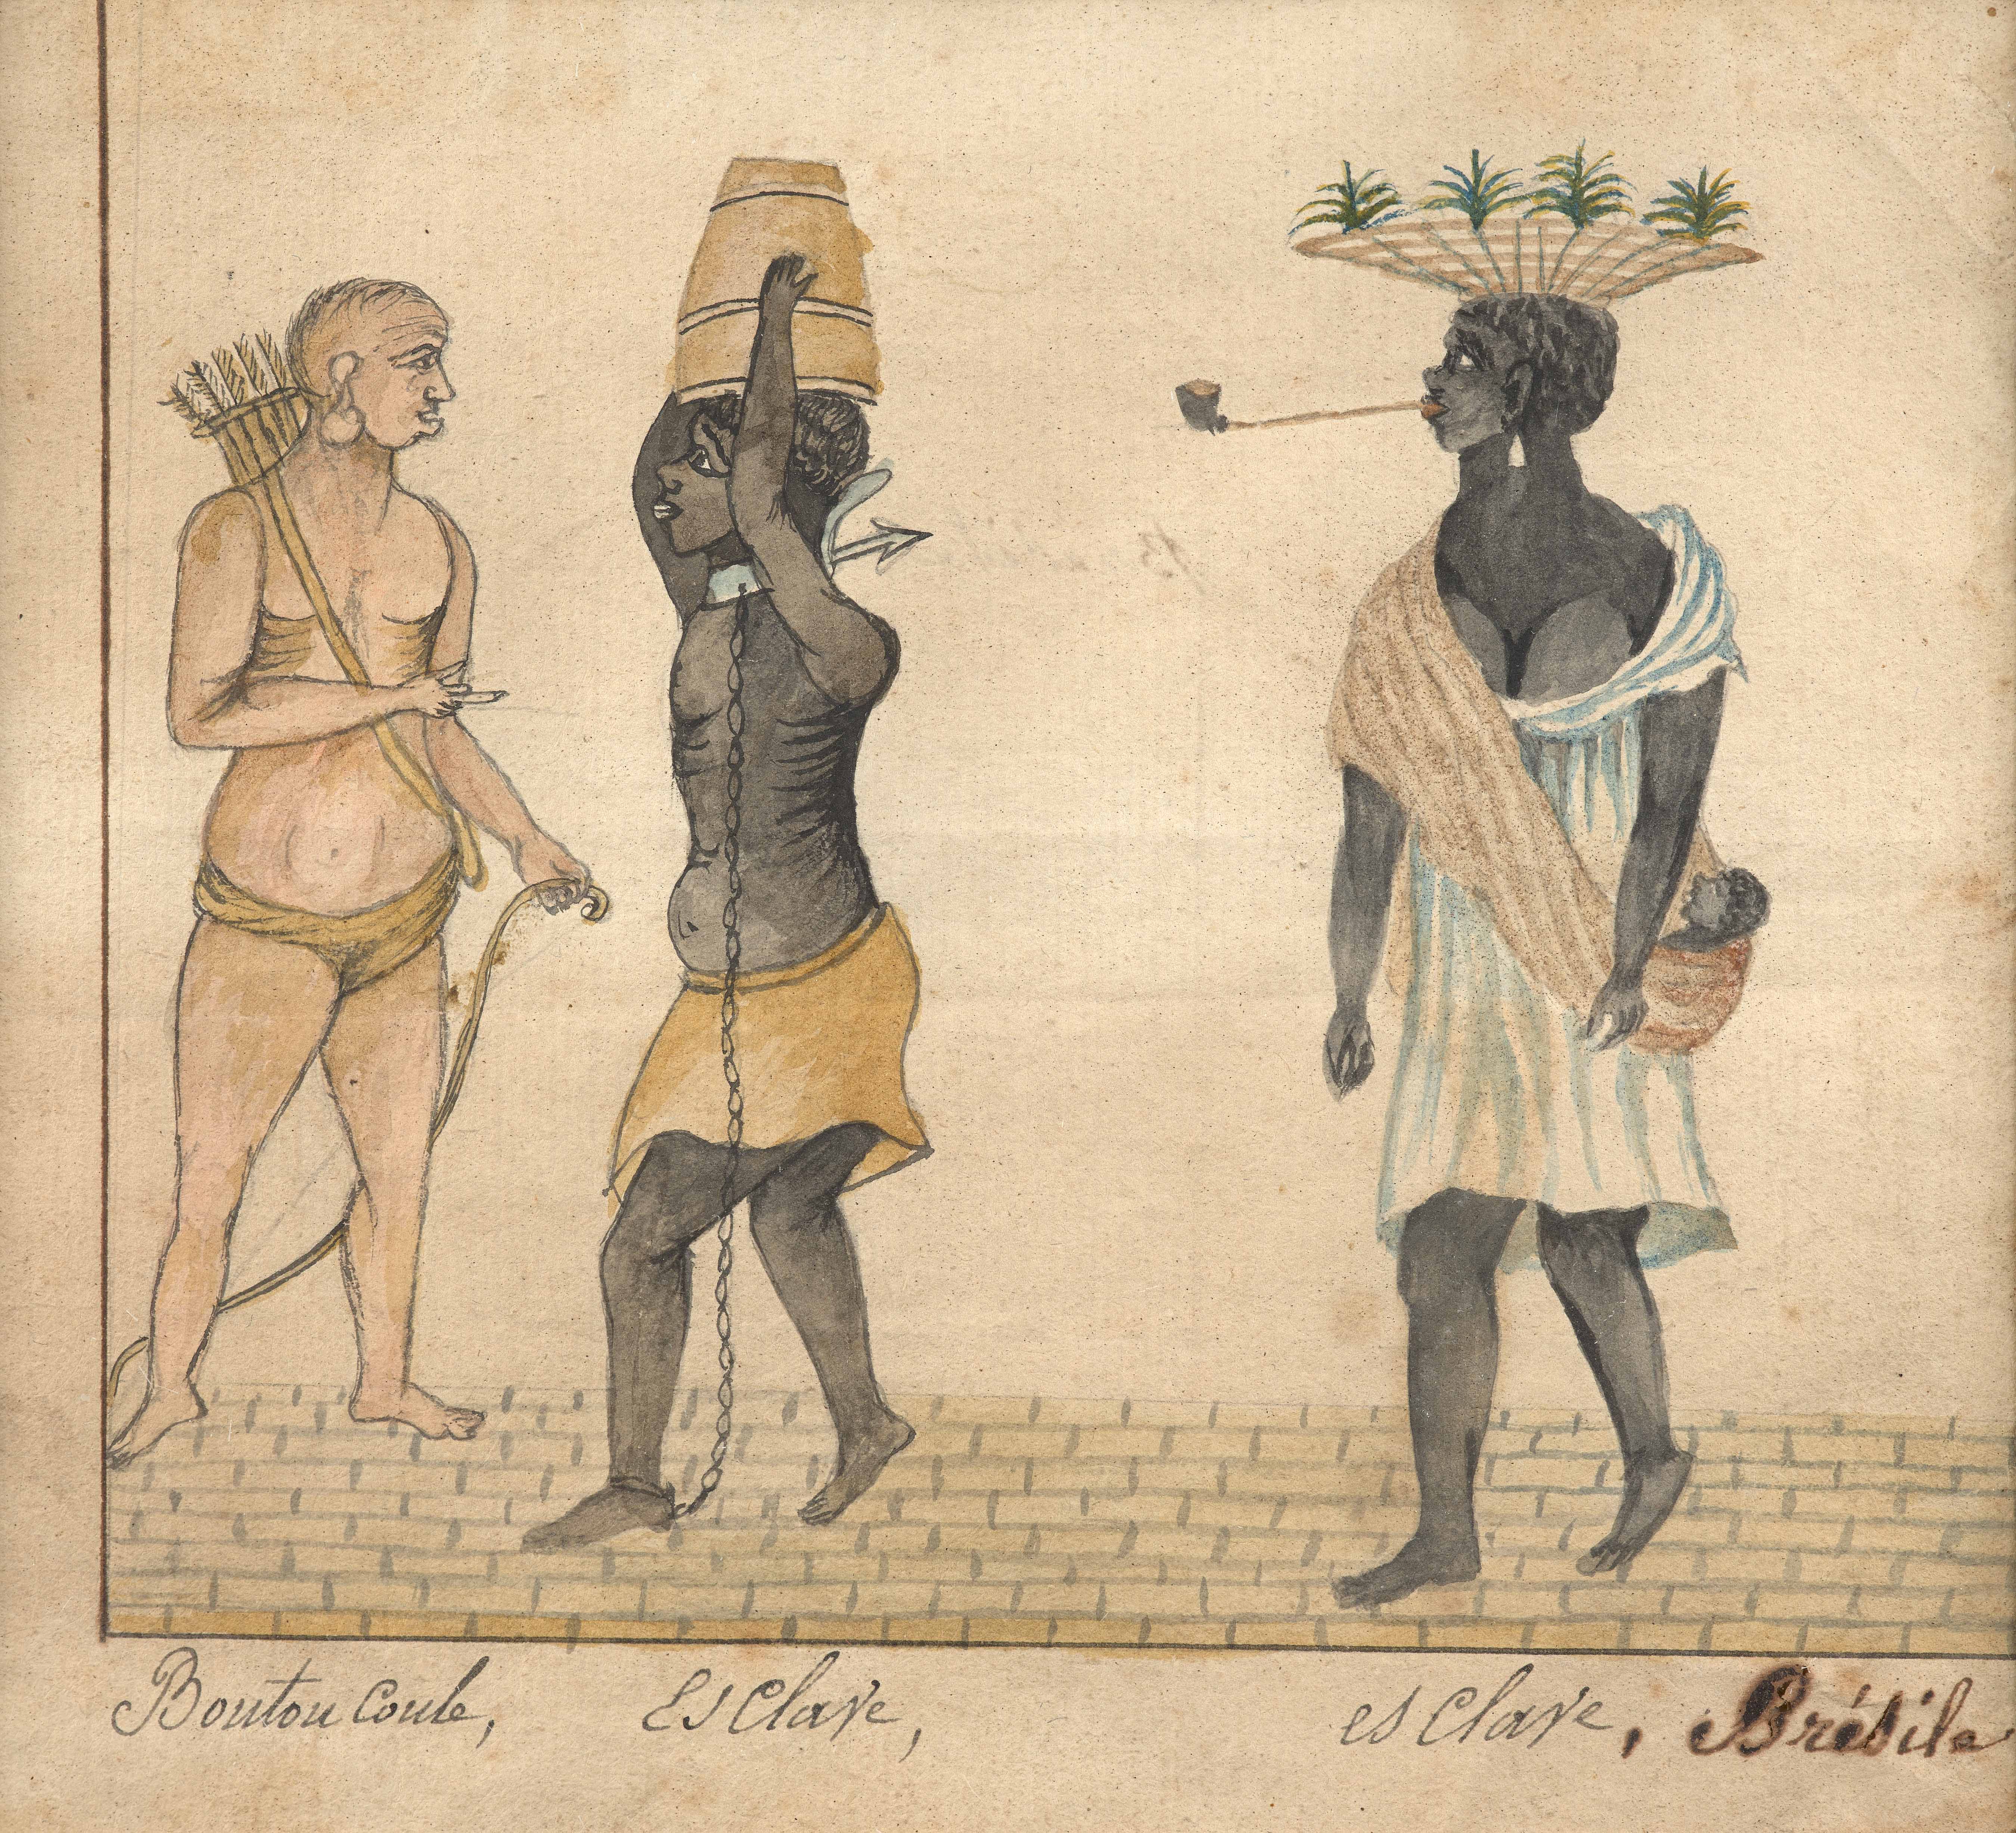 Boutou Coule, EsClave, esClave, Brésile